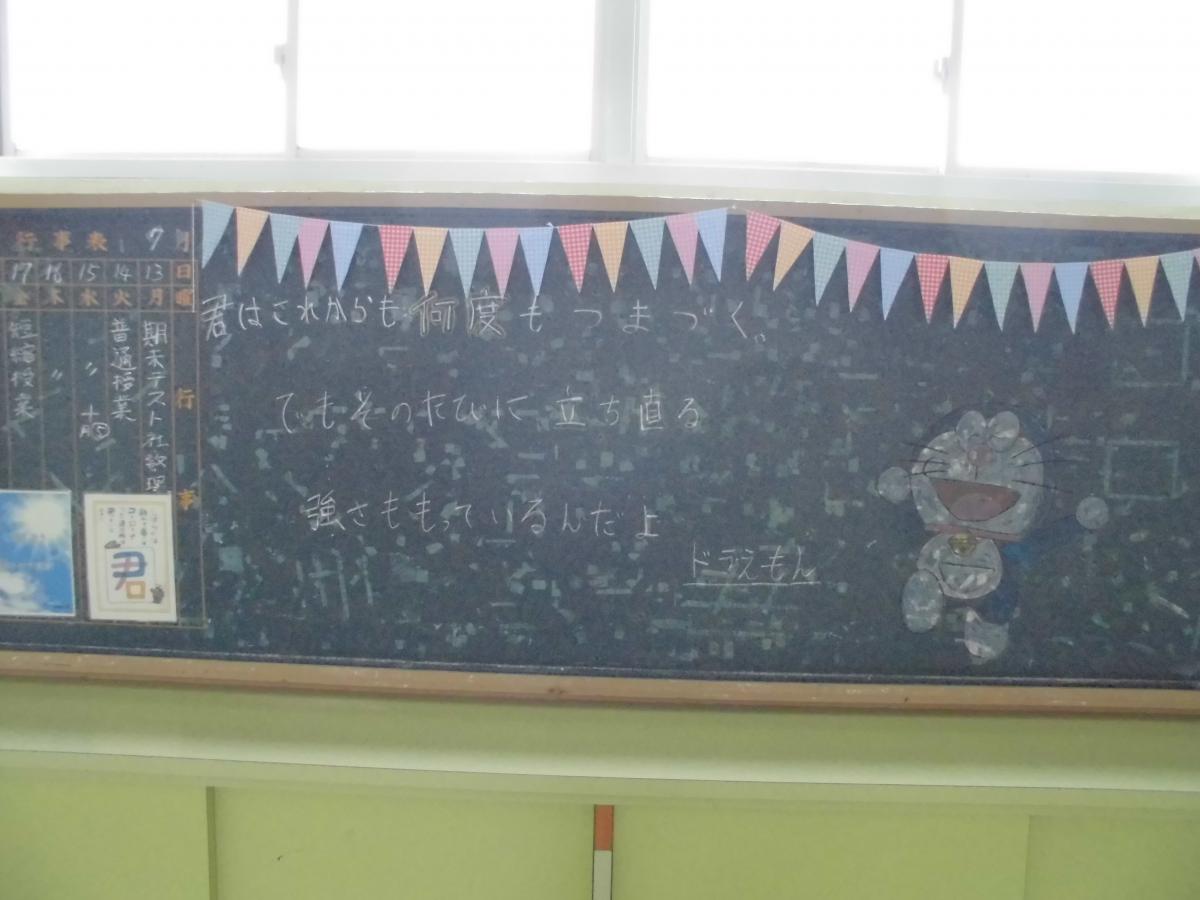 行事表 7月
17 16 15 14 13 日
金 木 水 火 月 曜
行事
期末テスト社数理
普通授業
〃
〃
短縮授業
君はこれからも何度もつまづく。
でもそのたびに立ち直る
強さももっているんだよ
ドラえもん
君